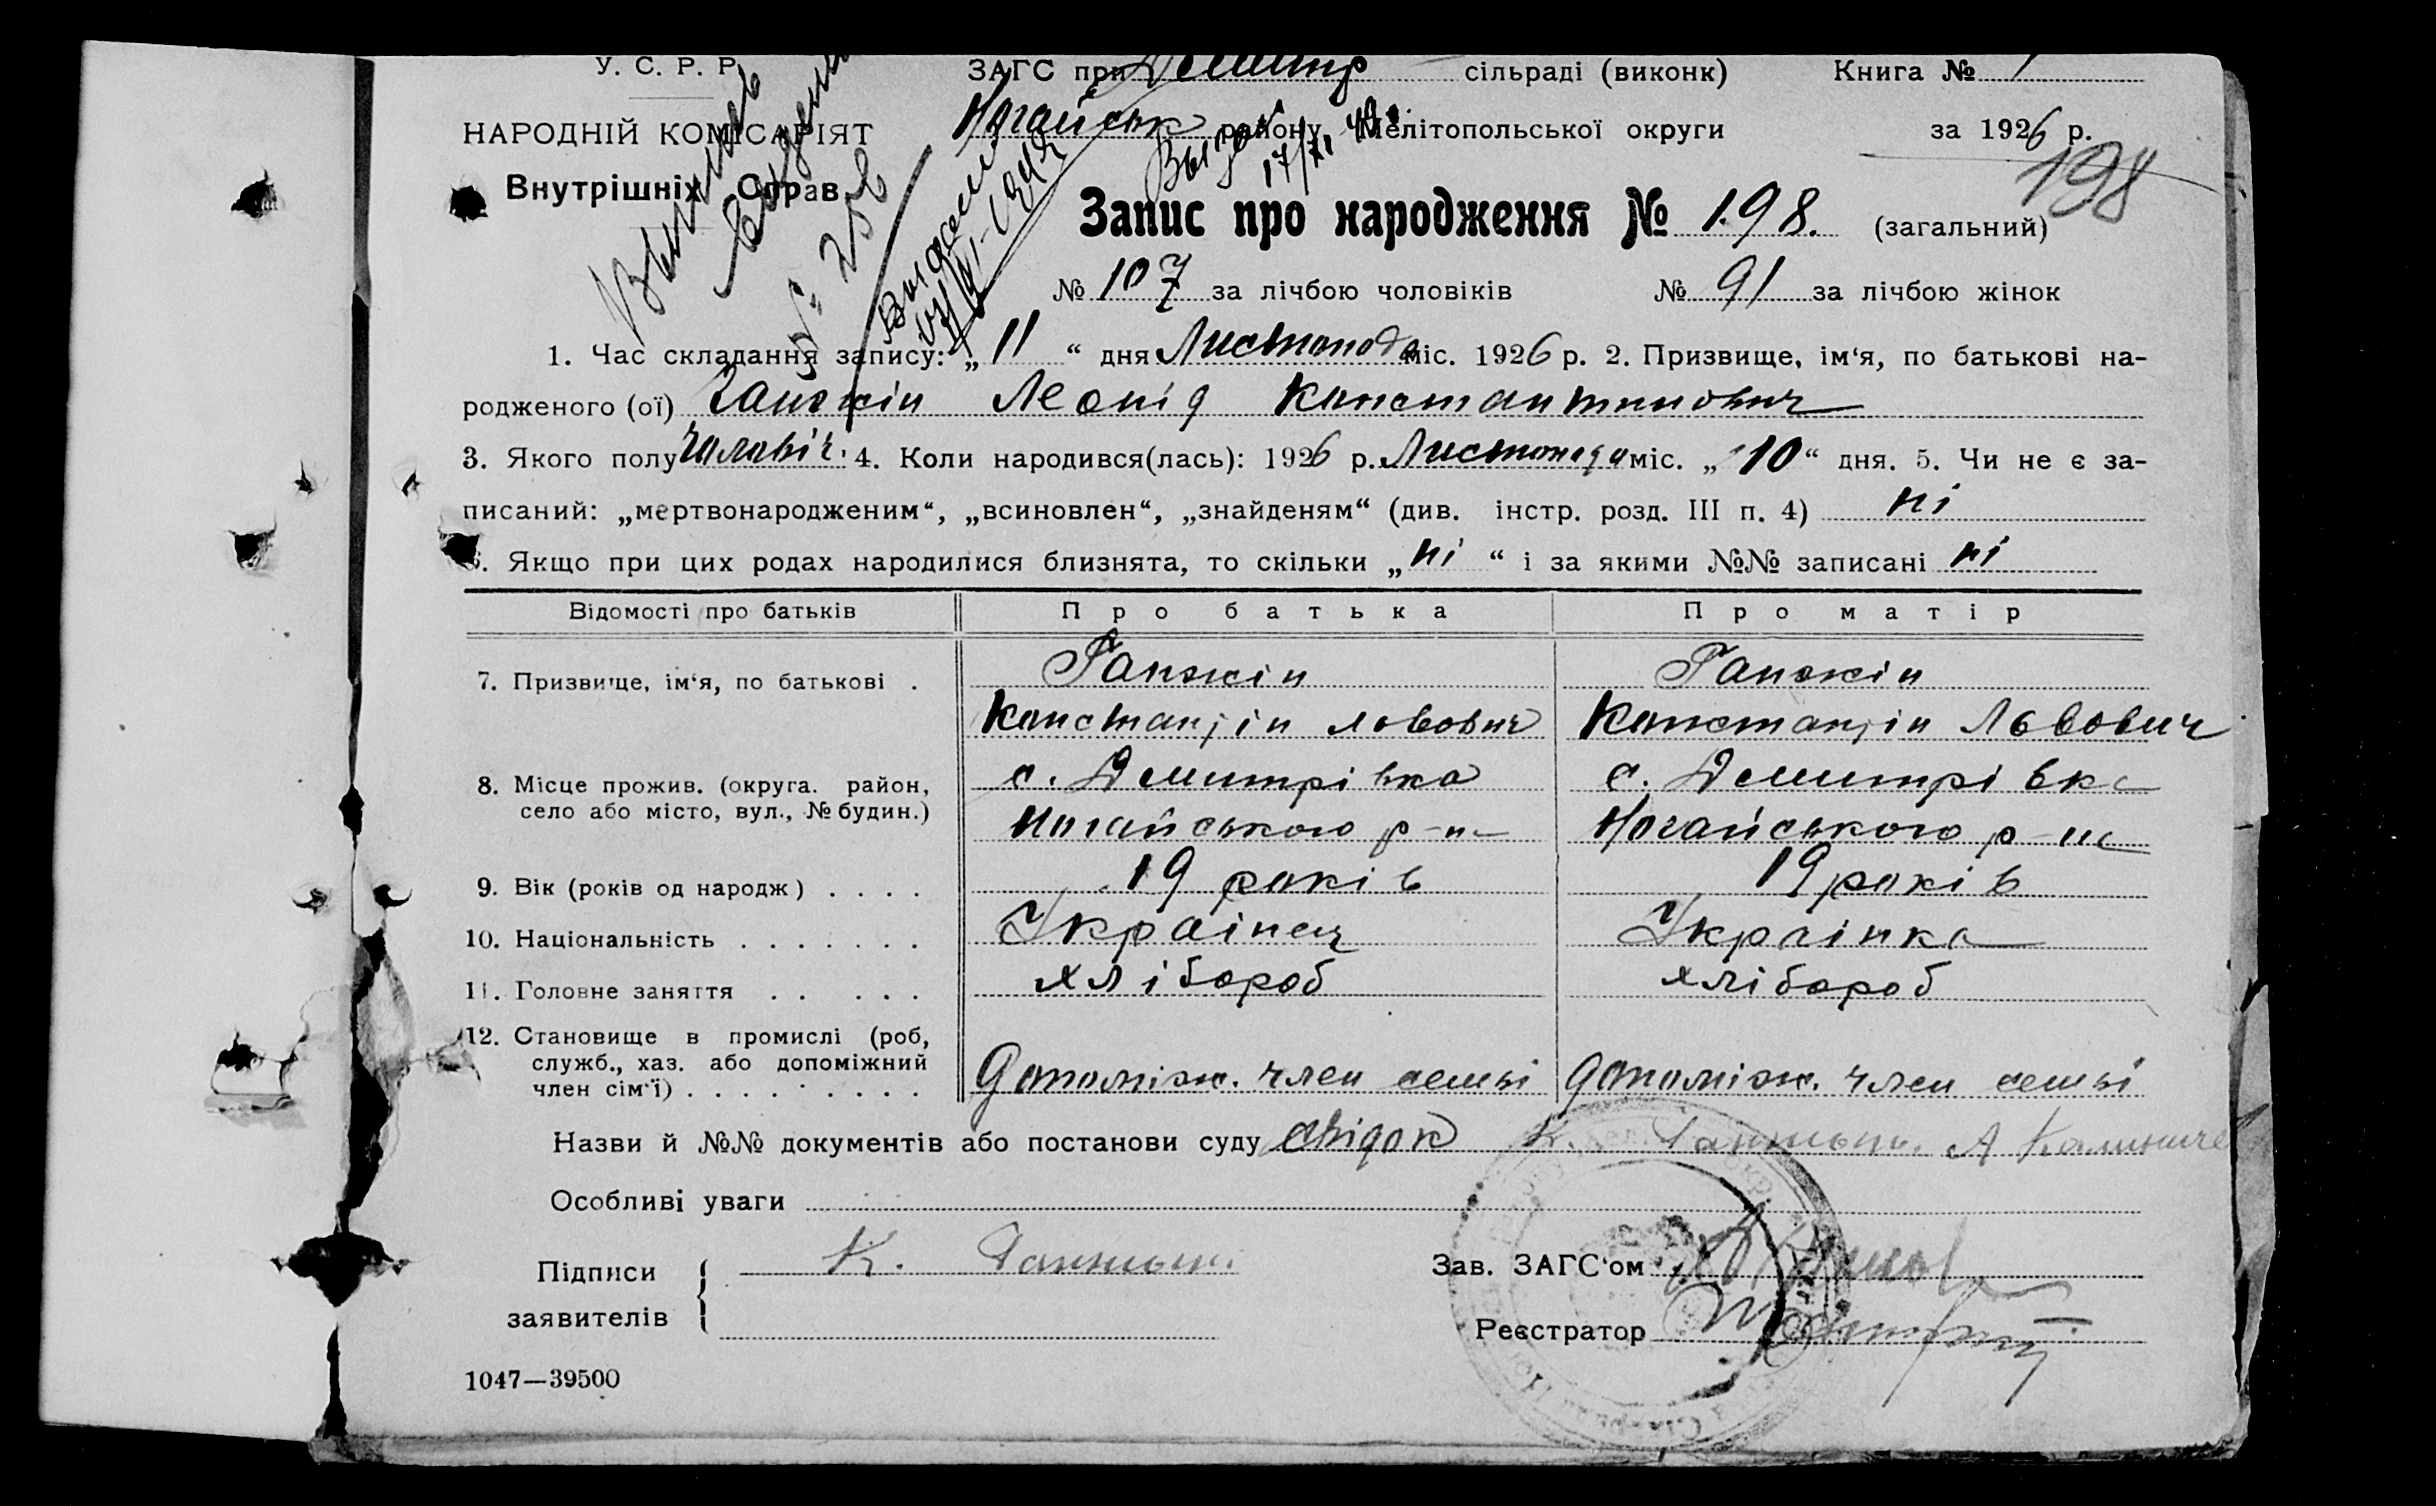 У. С. Р. Р. ЗАГС при Демитр сільраді (виконк) Книга №
НАРОДНІЙ КОМІСАРІЯТ Ногайськ району Мелітопольської округи за 1926 р.
Внутрішніх Справ 198
Запис про народження № 198. (загальний)
№ 107 за лічбою чоловіків № 91 за лічбою жінок
1. Час складання запису: „ 11 “ дня Листопода міс. 1926 р. 2. Призвище, ім‘я, по батькові на-
родженого (ої) Ганжін Леонід Константинович
3. Якого полу Чоловіч. 4. Коли народився(лась): 1926 р. Листопада міс. „10“ дня. 5. Чи не є за-
писаний: „мертвонародженим“, „всиновлен“, „знайденям“ (див. інстр. розд. III п. 4) ні
6. Якщо при цих родах народилися близнята, то скільки „ ні “ і за якими №№ записані ні
Відомості про батьків Про батька Про матір
7. Призвище, ім‘я, по батькові . Ганжін Ганжін
Константін Львович Константін Львович
8. Місце прожив. (округа. район, с. Демитрівка с. Демитрівка
село або місто, вул., № будин.) Ногайського р-на Ногайського р-на
9. Вік (років од народж) . . . . 19 років 19 років
10. Національність . . . . . . . Українец Українка
11. Головне заняття . . . . . хлібороб хлібороб
12. Становище в промислі (роб,
служб., хаз. або допоміжний
член сім‘ї) . . . . . . . . Допоміж. член семьі Допоміж. член семьі
Назви й №№ документів або постанови суду свідок К. Ганжин. А Калиниче
Особливі уваги
Підписи К. Ганжин. Зав. ЗАГС‘ом
заявителів Реєстратор
1047—39500